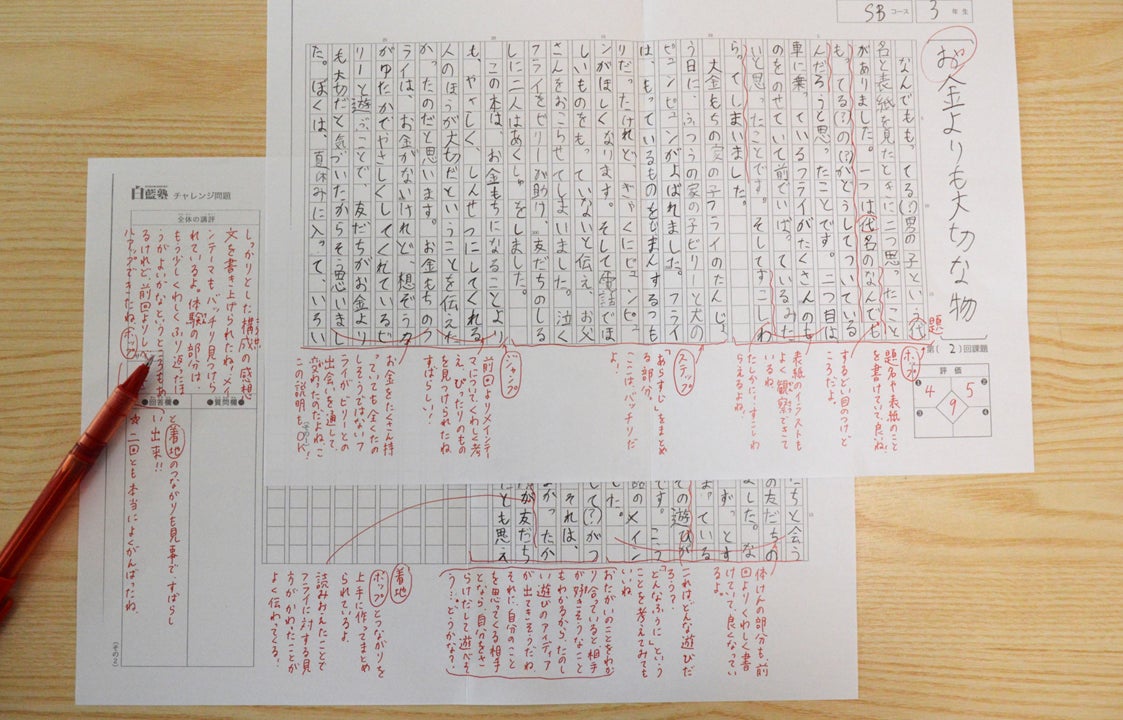 SBコース
3年生
「お金よりも大切な物」
題
第(2)回課題
評価
① 5
② 4
9
③
④
なんでももってる(?)男の子という代
名と表紙を見たときに二つ思ったこと
がありました。一つは代名のなんでも
もってる(?)の(?)がどうしてついている
んだろうと思ったことです。二つ目は
車に乗っているフライがたくさんのも
のをのせていて前でいばっているみた
いと思ったことです。そしてすこしわ
らってしまいました。
大金もちの家の子フライのたんじょ
う日に、ふつうの家の子ビリーと犬の
ピュンピュンがよばれました。フライ
は、もっているものをじまんするつも
りだったけれど、ぎゃくにピュンピュ
ンがほしくなります。そして電話でほ
しいものをもっていないと伝え、お父
さんをおこらせてしまいました。泣く
フライをビリーが助け、友だちのしる
しに二人はあくしゅをしました。
この本は、お金もちになることより
も、やさしく、しんせつにしてくれる
人のほうが大切だということを伝えた
かったのだと思います。お金もちのフ
ライは、お金がないけれど、想ぞう力
がゆたかでやさしくしてくれているビ
リーと遊ぶことで、友だちがお金より
も大切だと気づいたからそう思いまし
た。ぼくは、夏休みに入って、いろい
ホップ
題名や表紙のこと
を書けていて良いね!
するどい目のつけど
ころだよ。
表紙のイラストも
よく観察できて
いるね。
たしかに…すこしわ
らえるよね。
ステップ
「あらすじ」をまとめ
る部分。
ここは、バッチリだ
よ!
ジャンプ
前回よりメインテー
マについてくわしく考
え、ぴったりのもの
を見つけられたね
すばらしい!
お金をたくさん持
っていても全くたの
しそうではないフ
ライが、ビリーとの
出会いを通して
変わったのだよね。こ
この説明もOK!
白藍塾 チャレンジ問題
全体の講評
しっかりとした構成の感想
文を書き上げられたね。メイ
ンテーマもバッチリ見つけら
れているよ。体験の部分は
もう少しくわしくふり返ったほ
うがよいかなというところもあ
るけれど、前回よりレベ
ルアップできたね。ホップ
●回答欄●
●質問欄●
と着地のつながりも見事ですばらし
い出来!!
★二回とも本当によくがんばったね。
ちと会う
の友だちの
よした。な
ずっとす
ま?ている
ての遊びが
です。こう
のメイン
した。
して(?)がつ
それは、
かったか
が友だち
とも思え
体けんの部分も、前
回よりくわしく書
けていて、良くなってい
るよ。
これはどんな遊びだ
ろう?
「どんなふうに」という
ことを考えてみても
いいね
おたがいのことをわか
り合っていると相手
が好きそうなこと
もわかるから、たのし
い遊びのアイディア
が出てきそうだね。
それに自分のこと
を思ってくる相手
となら、自分をさ
らけだして遊べそ
う…。どうかな?
着地
ホップとつながりを
上手に作ってまとめ
られているよ。
読みおえたことで
フライに対する見
方がかわったことが
よく伝わってくる!
(その2)